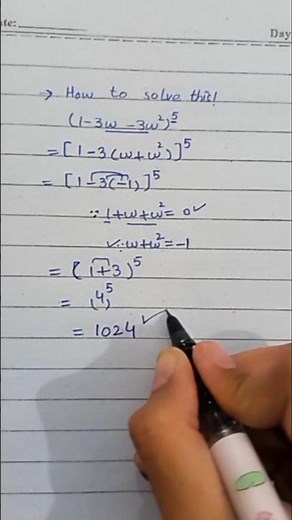 Date:
Day
→ How to solve this!
(1-3ω-3ω²)⁵
=[1-3(ω+ω²)]⁵
=[1-3(-1)]⁵
∵ 1+ω+ω²=0✓
✓∴ω+ω²=-1
=(1+3)⁵
=(4)⁵
=1024 ✓